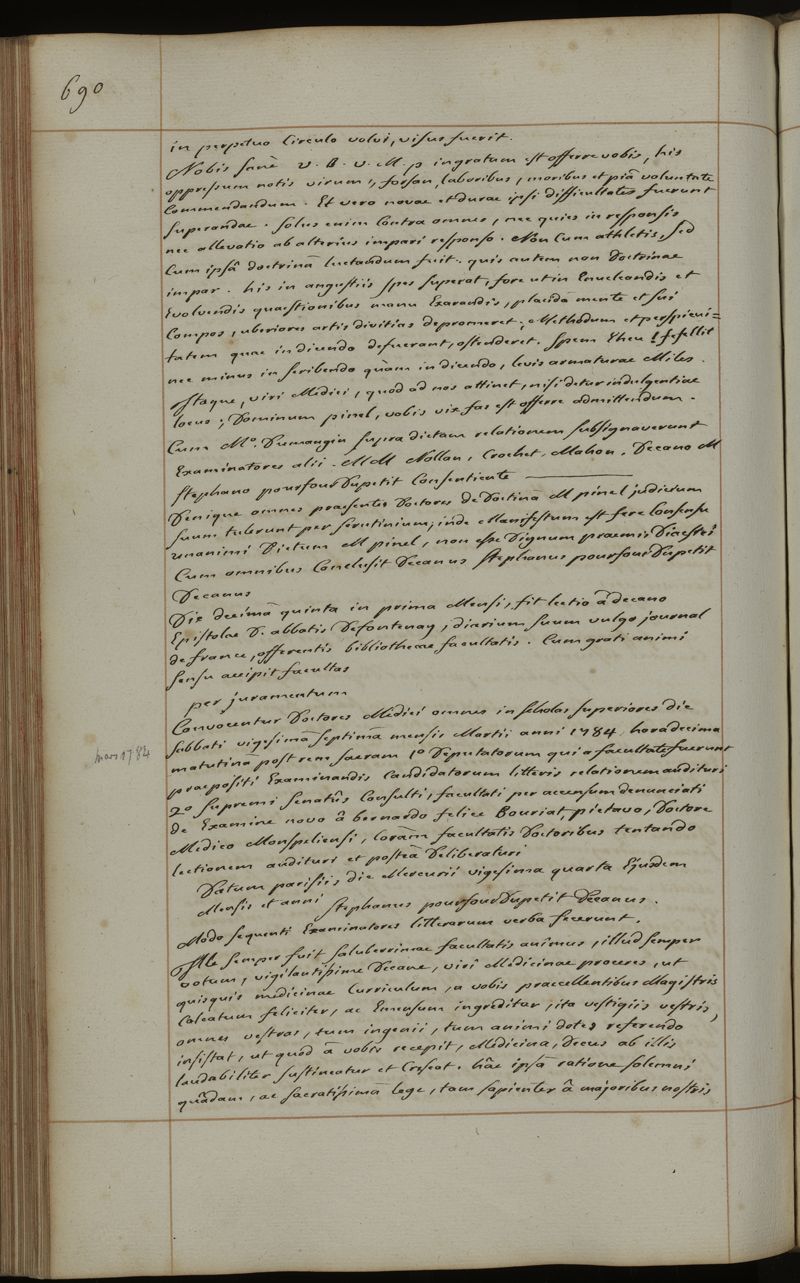 690
in perpetuo Circulo volvi, visus fuerit.
Nobis sanè v. D. v. M. p ingratum est offerre vobis, his
oppressum notis virum, forsan, laboribus, moribus et piâ voluntate
Commendandum. Et vero novae et durae ipsi difficultates fuerunt
Superandae. Solus enim Contra omnes, nec quies in responsis
nec allevatio ab alterius impari responso. Non Cum athletis, sed
Cum ipsâ doctrinâ luctandum fuit. quis autem non Doctrinae
impar. his in angustiis spes superat, fore ut in Enucleandis et
Evolvendis quaestionibus manu Exarandis, placida mente et sui
Compos, uberiores artis divitias depromeret, Methodum et perspicui=
tatem quae in dicendo defuerant, ostenderet. Spem Eheu ! fefellit
nec minus in scribendo quàm in dicendo, levis armaturae Miles.
Itaque, viri Medici, quod ad nos attinet, nisi detur indulgentiae
locus, Dominum pinel, vobis vix fas est offerre admittendum.
Cum Mo. Dumangin supra dictam relationem subsignaverunt
Examinatores alii. MM Nollan, Crochet, Mahon, Decano M
Stephano pourfour Dupetit Consentiente
Denique omnes praesentes Doctores de Doctina M pinel judicium
suum tulerunt per scrutinium; inde Manifestum est fere Consensu
unanimi Dictum M pinel, non esse Dignum praemii Diaestei
Cum omnibus Conclusit Decanus Stephanus pourfour Dupetit
Decanus
Die decimâ quinta in prima Mensi, fit lectio â decano
Epistolae D. abbatis Defontenay, diarium suum vulgo journal
de france, offerentis bibliothecae facultatis. Cum grati animi
sensu accipit facultas
per juramentum
Convocentur Doctores Medici omnes in scholas superiores die
Sabbati vigesimâ septimâ mensis Martii anni 1784, hora decima
mars 1784
matutina post rem sacram 1o Deputatorum qui a facultate fuerunt
praepositi Examinandis Candidatorum litteris relationem audituri
2o Supremi Senatûs Consulti, facultati per accensum denunciati
de Examine novo â bernardo felice Bouriat, pictavo, Doctore
Medico Monspeliensi, Coràm facultatis Doctoribus tentando
lectionem audituri et posteâ Deliberaturi
Datum parisiis die Mercurii vigesima quarta Ejusdem
Mensis et anni Stephanus pourfour Dupetit Decanus.
Modo sequenti Examinatores litterarum verba fecerunt.
Ille semper fuit saluberrimae facultatis animus, illud semper
votum, vigilantissime Decane, viri Medicinae proceres, ut
quisquis medicinae Curriculum, a vobis praecellentibus Magistris
Calcatum feliciter, ac Emensum ingreditur, ita vestigiis vestris,
omnes vestras, tum ingenii, tum animi dotes referendo
insistat, ut quod â vobis recepit, Medicina, Decus ab illis
laudabiliter sustineatur et Crescat. hâc ipsâ ratione solemni
quâdam, ac sacratissimâ lege, tam sapienter â majoribus nostris